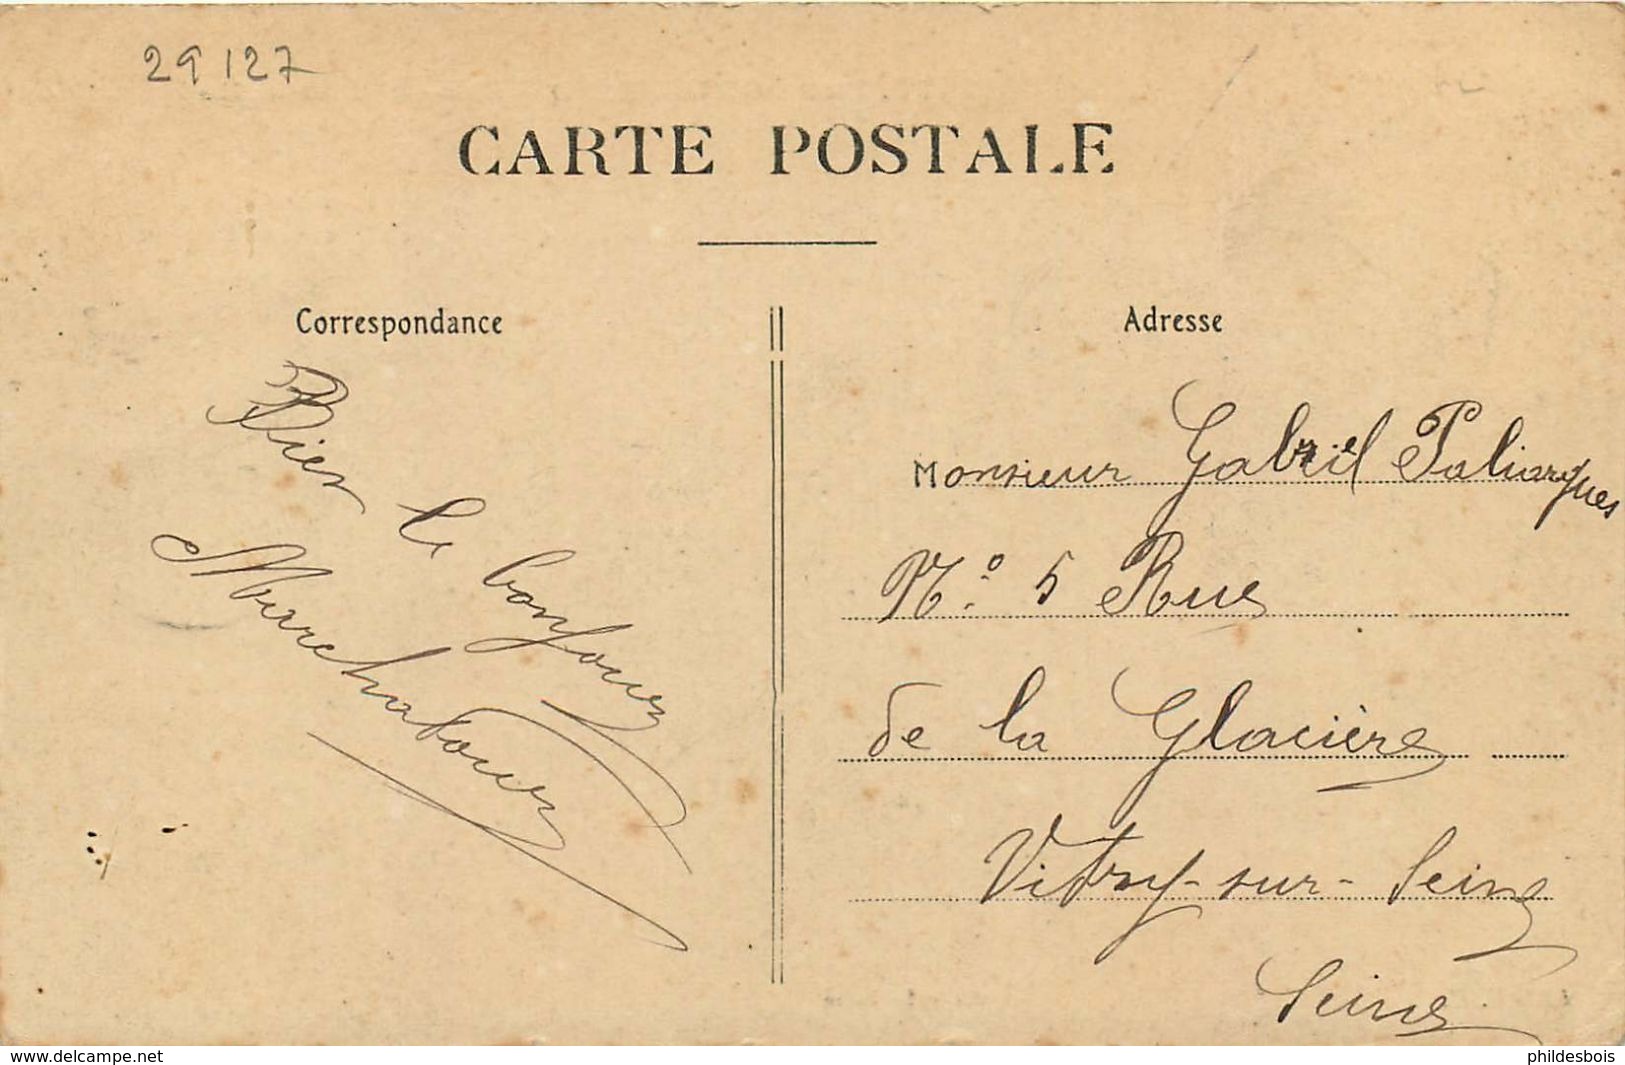 29127
CARTE POSTALE
Correspondance
Bien le bonjour
Marchatour
Adresse
Monsieur Gabriel Paliargues
N.º 5 Rue
de la Glacière
Vitry-sur-Seine
Seine
www.delcampe.net
phildesbois